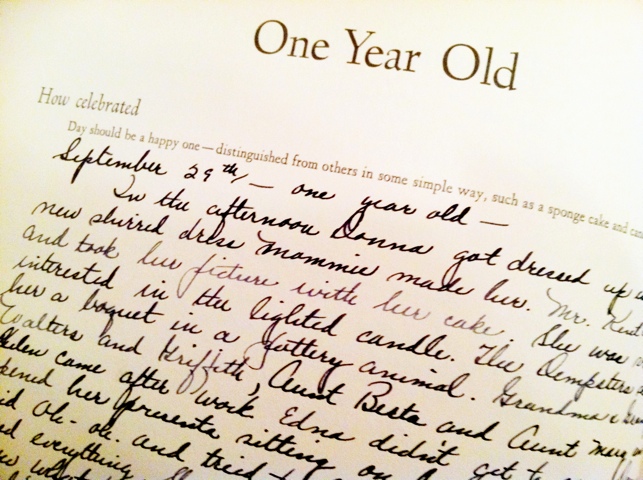 One Year Old
How celebrated
Day should be a happy one — distinguished from others in some simple way, such as a sponge cake and can
September 29th, — one year old —
In the afternoon Donna got dressed up
new shirred dress mommie made her. Mr.
and took her picture with her cake. She was
interested in the lighted candle. The Dempsters
her a boquet in a pottery animal. Grandma
Walters and Griffith, Aunt Besta and Aunt Mary
Helen came after work. Edna didn't get to
her presents sitting on
Oh-oh. and tried
everything